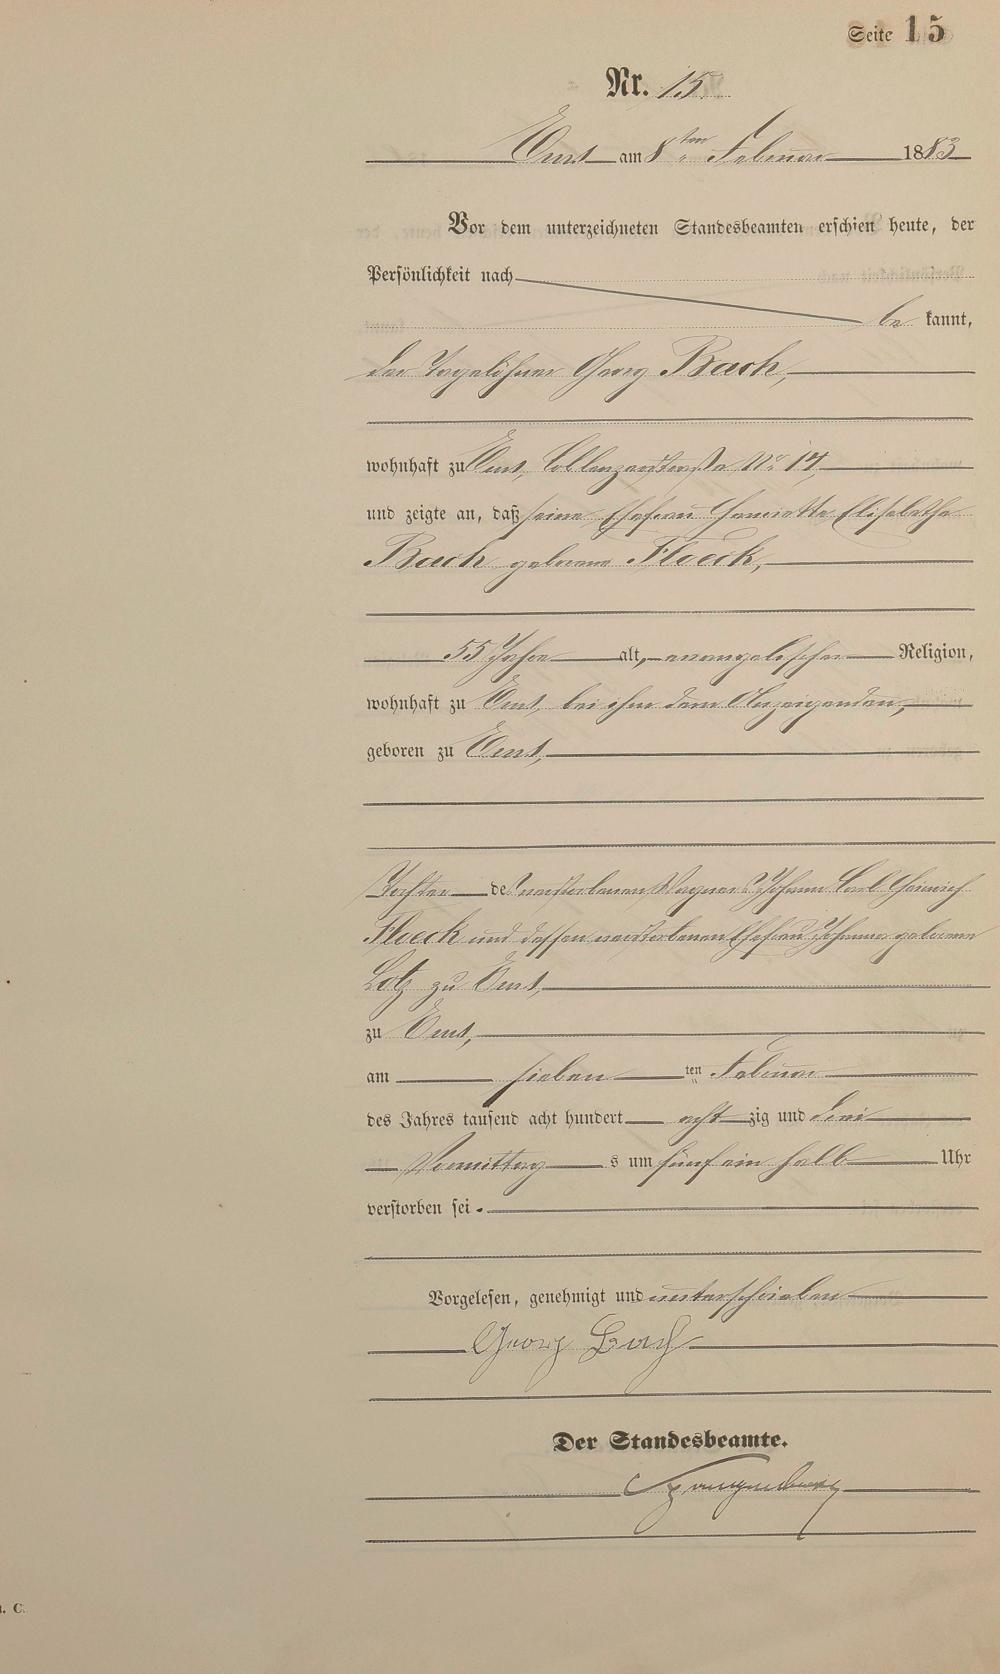 Seite 15
Nr. 15
Ems am 8ten Februar 1883
Vor dem unterzeichneten Standesbeamten erschien heute, der
Persönlichkeit nach
be kannt,
der Tagelöhner Georg Bach,
wohnhaft zu Ems, Coblenzerstraße No 17
und zeigte an, daß seine Ehefrau Henriette Elisabetha
Bach geborene Floeck,
55 Jahre alt, evangelischer Religion,
wohnhaft zu Ems, bei ihm dem Anzeigenden,
geboren zu Ems,
Tochter des verstorbenen Wagners Johann Carl Heinrich
Floeck und dessen verstorbenen Ehefrau Johanna geborene
Lotz zu Ems,
zu Ems,
am sieben ten Februar
des Jahres tausend acht hundert acht zig und drei
Vormittag s um fünf ein halb Uhr
verstorben sei.
Vorgelesen, genehmigt und unterschrieben
Georg Bach
Der Standesbeamte.
. C.